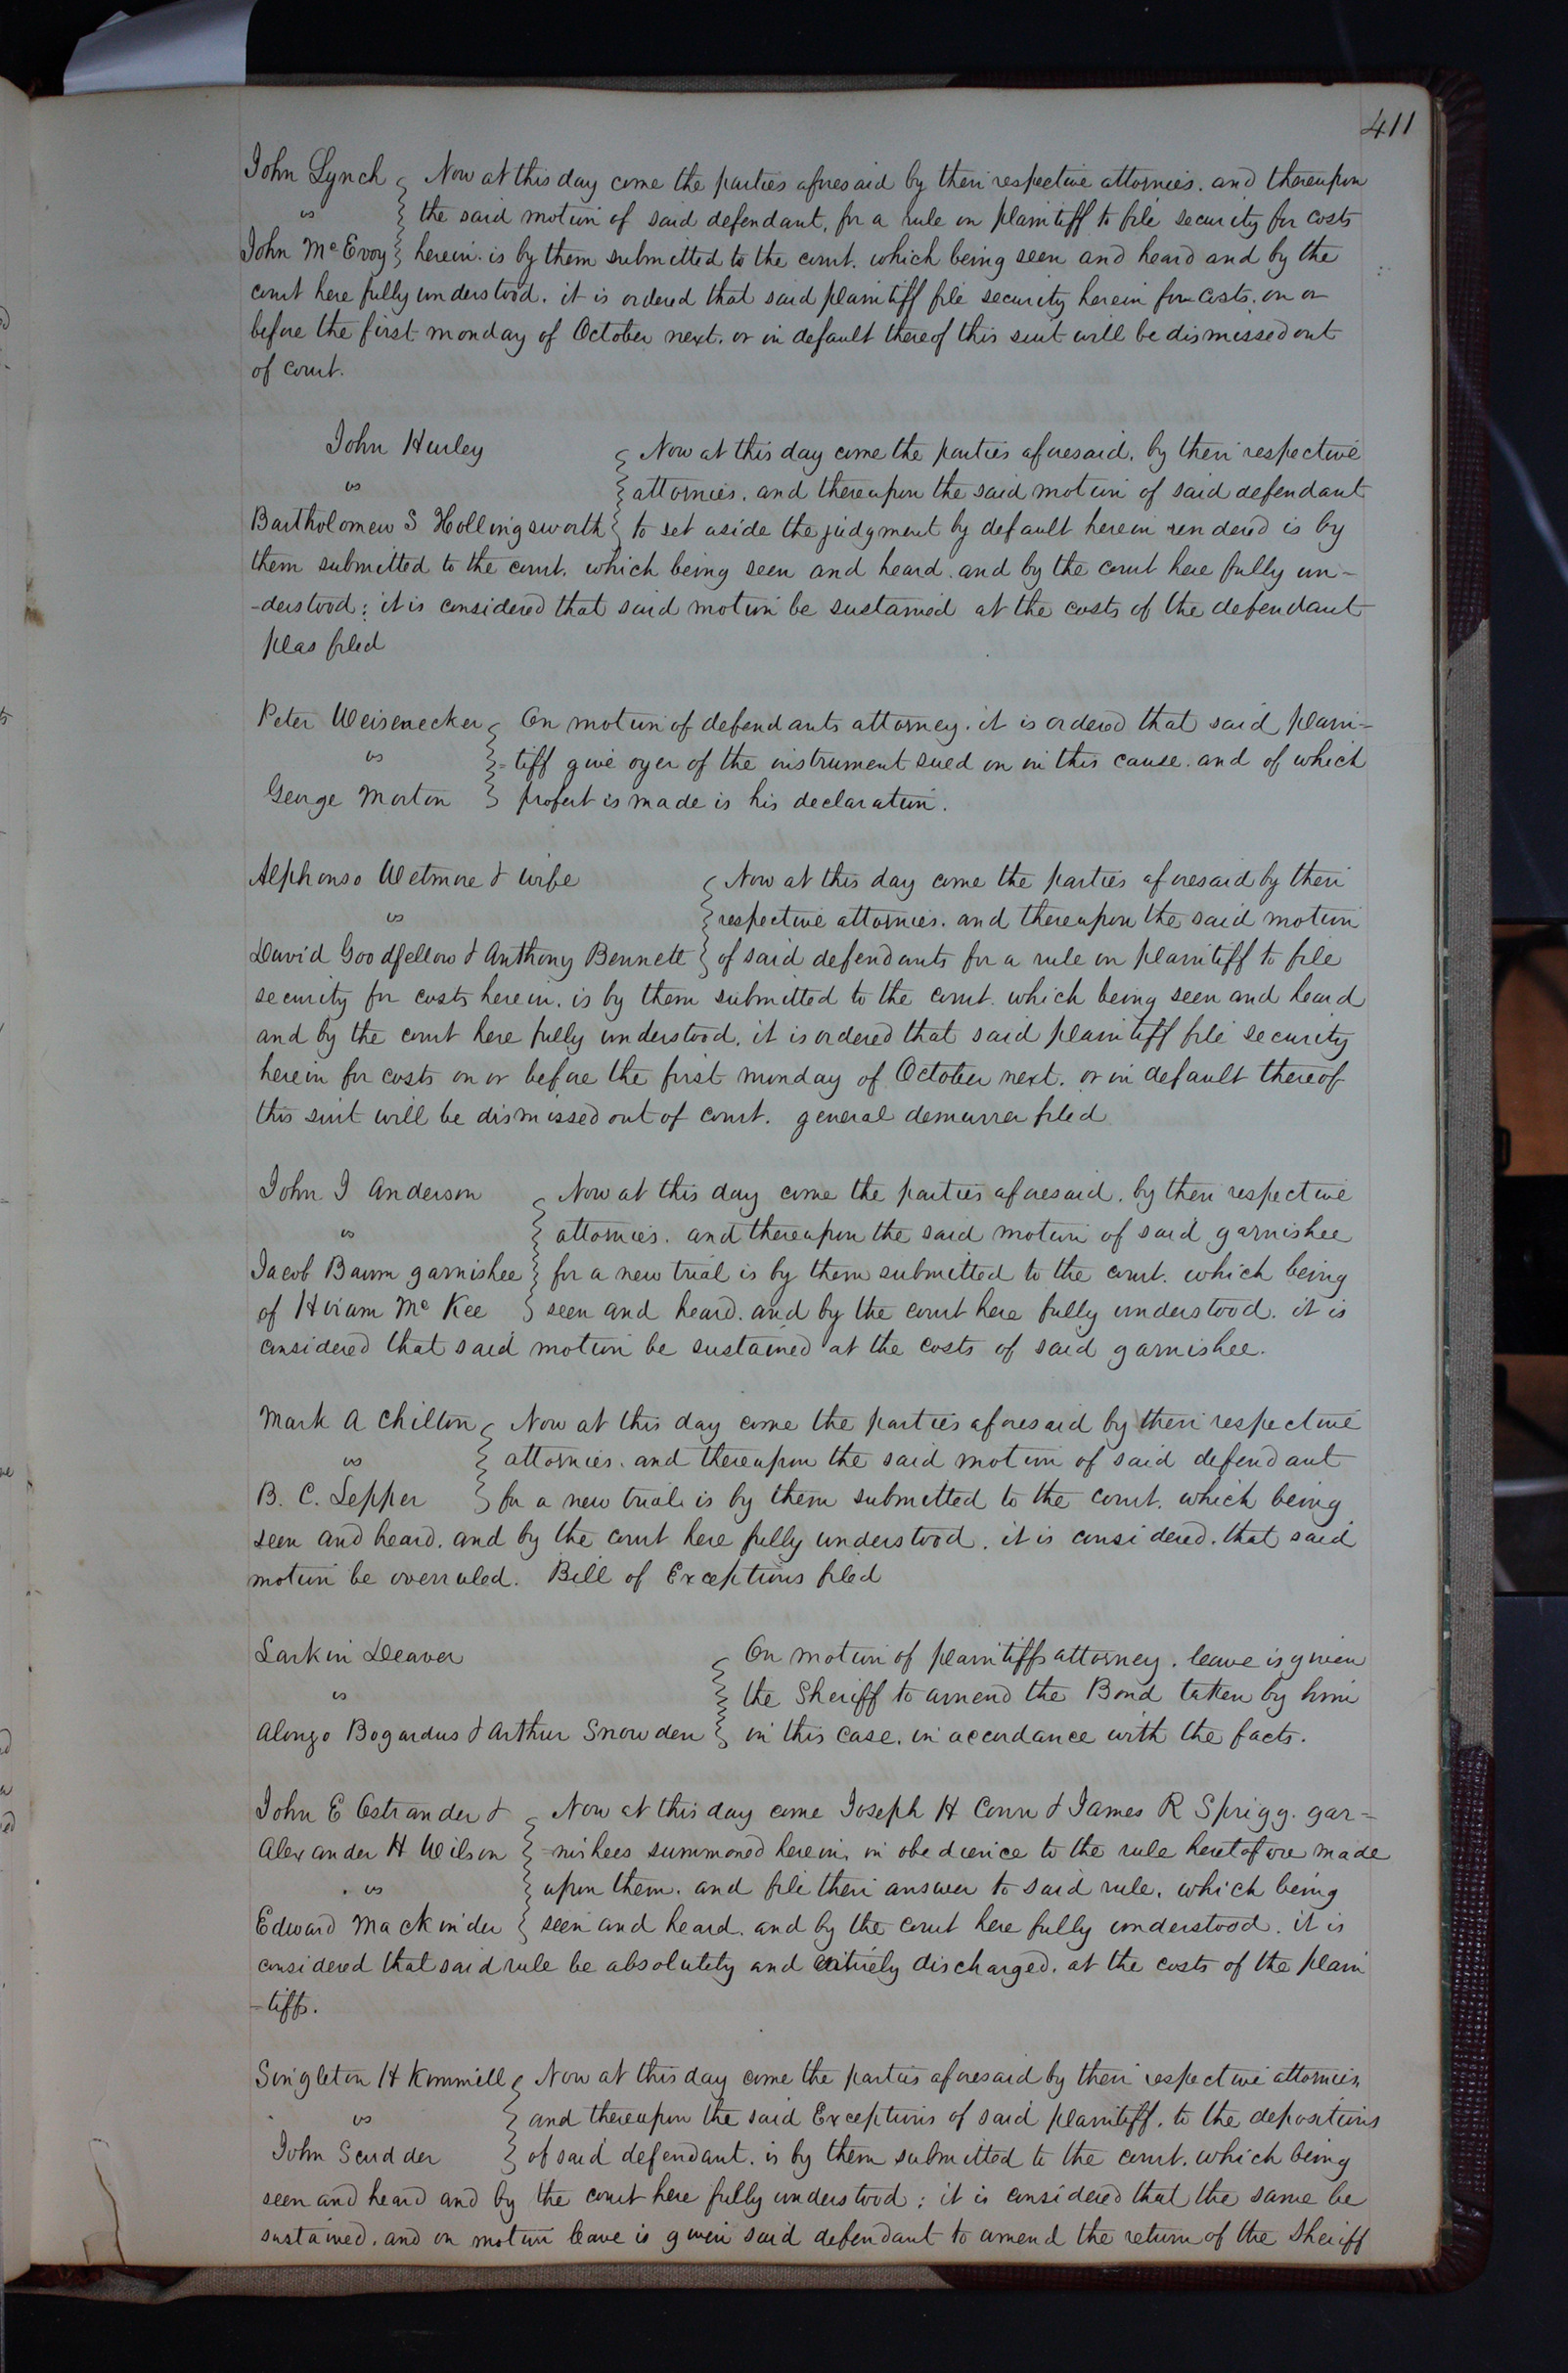 411
John Lynch Now at this day come the parties aforesaid by their respective attornies. and thereupon
vs the said motion of said defendant, for a rule on plaintiff to file security for costs
John Mc Evoy herein. is by them submitted to the court. which being seen and heard and by the
court here fully understood. it is ordered that said plaintiff file security herein for costs. on or
before the first monday of October next. or in default thereof this suit will be dismissed out
of court.
John Hurley Now at this day come the parties aforesaid. by their respective
vs attornies. and thereupon the said motion of said defendant
Bartholomew S Hollingsworth to set aside the judgment by default herein rendered is by
them submitted to the court. which being seen and heard. and by the court here fully un-
-derstood; it is considered that said motion be sustained at the costs of the defendant
pleas filed
Peter Weisenecker On motion of defendants attorney. it is ordered that said plain-
vs -tiff give oyer of the instrument sued on in this cause. and of which
George Morton profert is made is his declaration.
Alphonso Wetmore & wife Now at this day come the parties aforesaid by their
vs respective attornies. and thereupon the said motion
David Goodfellow & Anthony Bennett of said defendants for a rule on plaintiff to file
security for costs herein. is by them submitted to the court. which being seen and heard
and by the court here fully understood. it is ordered that said plaintiff file security
herein for costs on or before the first monday of October next. or in default thereof
this suit will be dismissed out of court. general demurrer filed
John J Anderson Now at this day come the parties aforesaid. by their respective
vs attornies. and thereupon the said motion of said garnishee
Jacob Baum garnishee for a new trial is by them submitted to the court. which being
of Hiram Mc Kee seen and heard. and by the court here fully understood. it is
considered that said motion be sustained at the costs of said garnishee.
Mark A Chilton Now at this day come the parties aforesaid by their respective
vs attornies. and thereupon the said motion of said defendant
B. C. Lepper for a new trial. is by them submitted to the court. which being
seen and heard. and by the court here fully understood. it is considered. that said
motion be overruled. Bill of Exceptions filed
Larkin Deaver On motion of plaintiffs attorney. leave is given
vs the Sheriff to amend the Bond taken by him
Alonzo Bogardus & Arthur Snowden in this case. in accordance with the facts.
John E Ostrander & Now at this day come Joseph H Conn & James R Sprigg. gar-
Alexander H Wilson -nishees summoned herein, in obedience to the rule heretofore made
vs upon them. and file their answer to said rule. which being
Edward Mackinder seen and heard. and by the court here fully understood. it is
considered that said rule be absolutely and entirely discharged. at the costs of the plain
-tiffs.
Singleton H Kimmill Now at this day come the parties aforesaid by their respective attornies,
vs and thereupon the said Exceptions of said plaintiff. to the depositions
John Scudder of said defendant. is by them submitted to the court. which being
seen and heard and by the court here fully understood; it is considered that the same be
sustained. and on motion leave is given said defendant to amend the return of the Sheriff